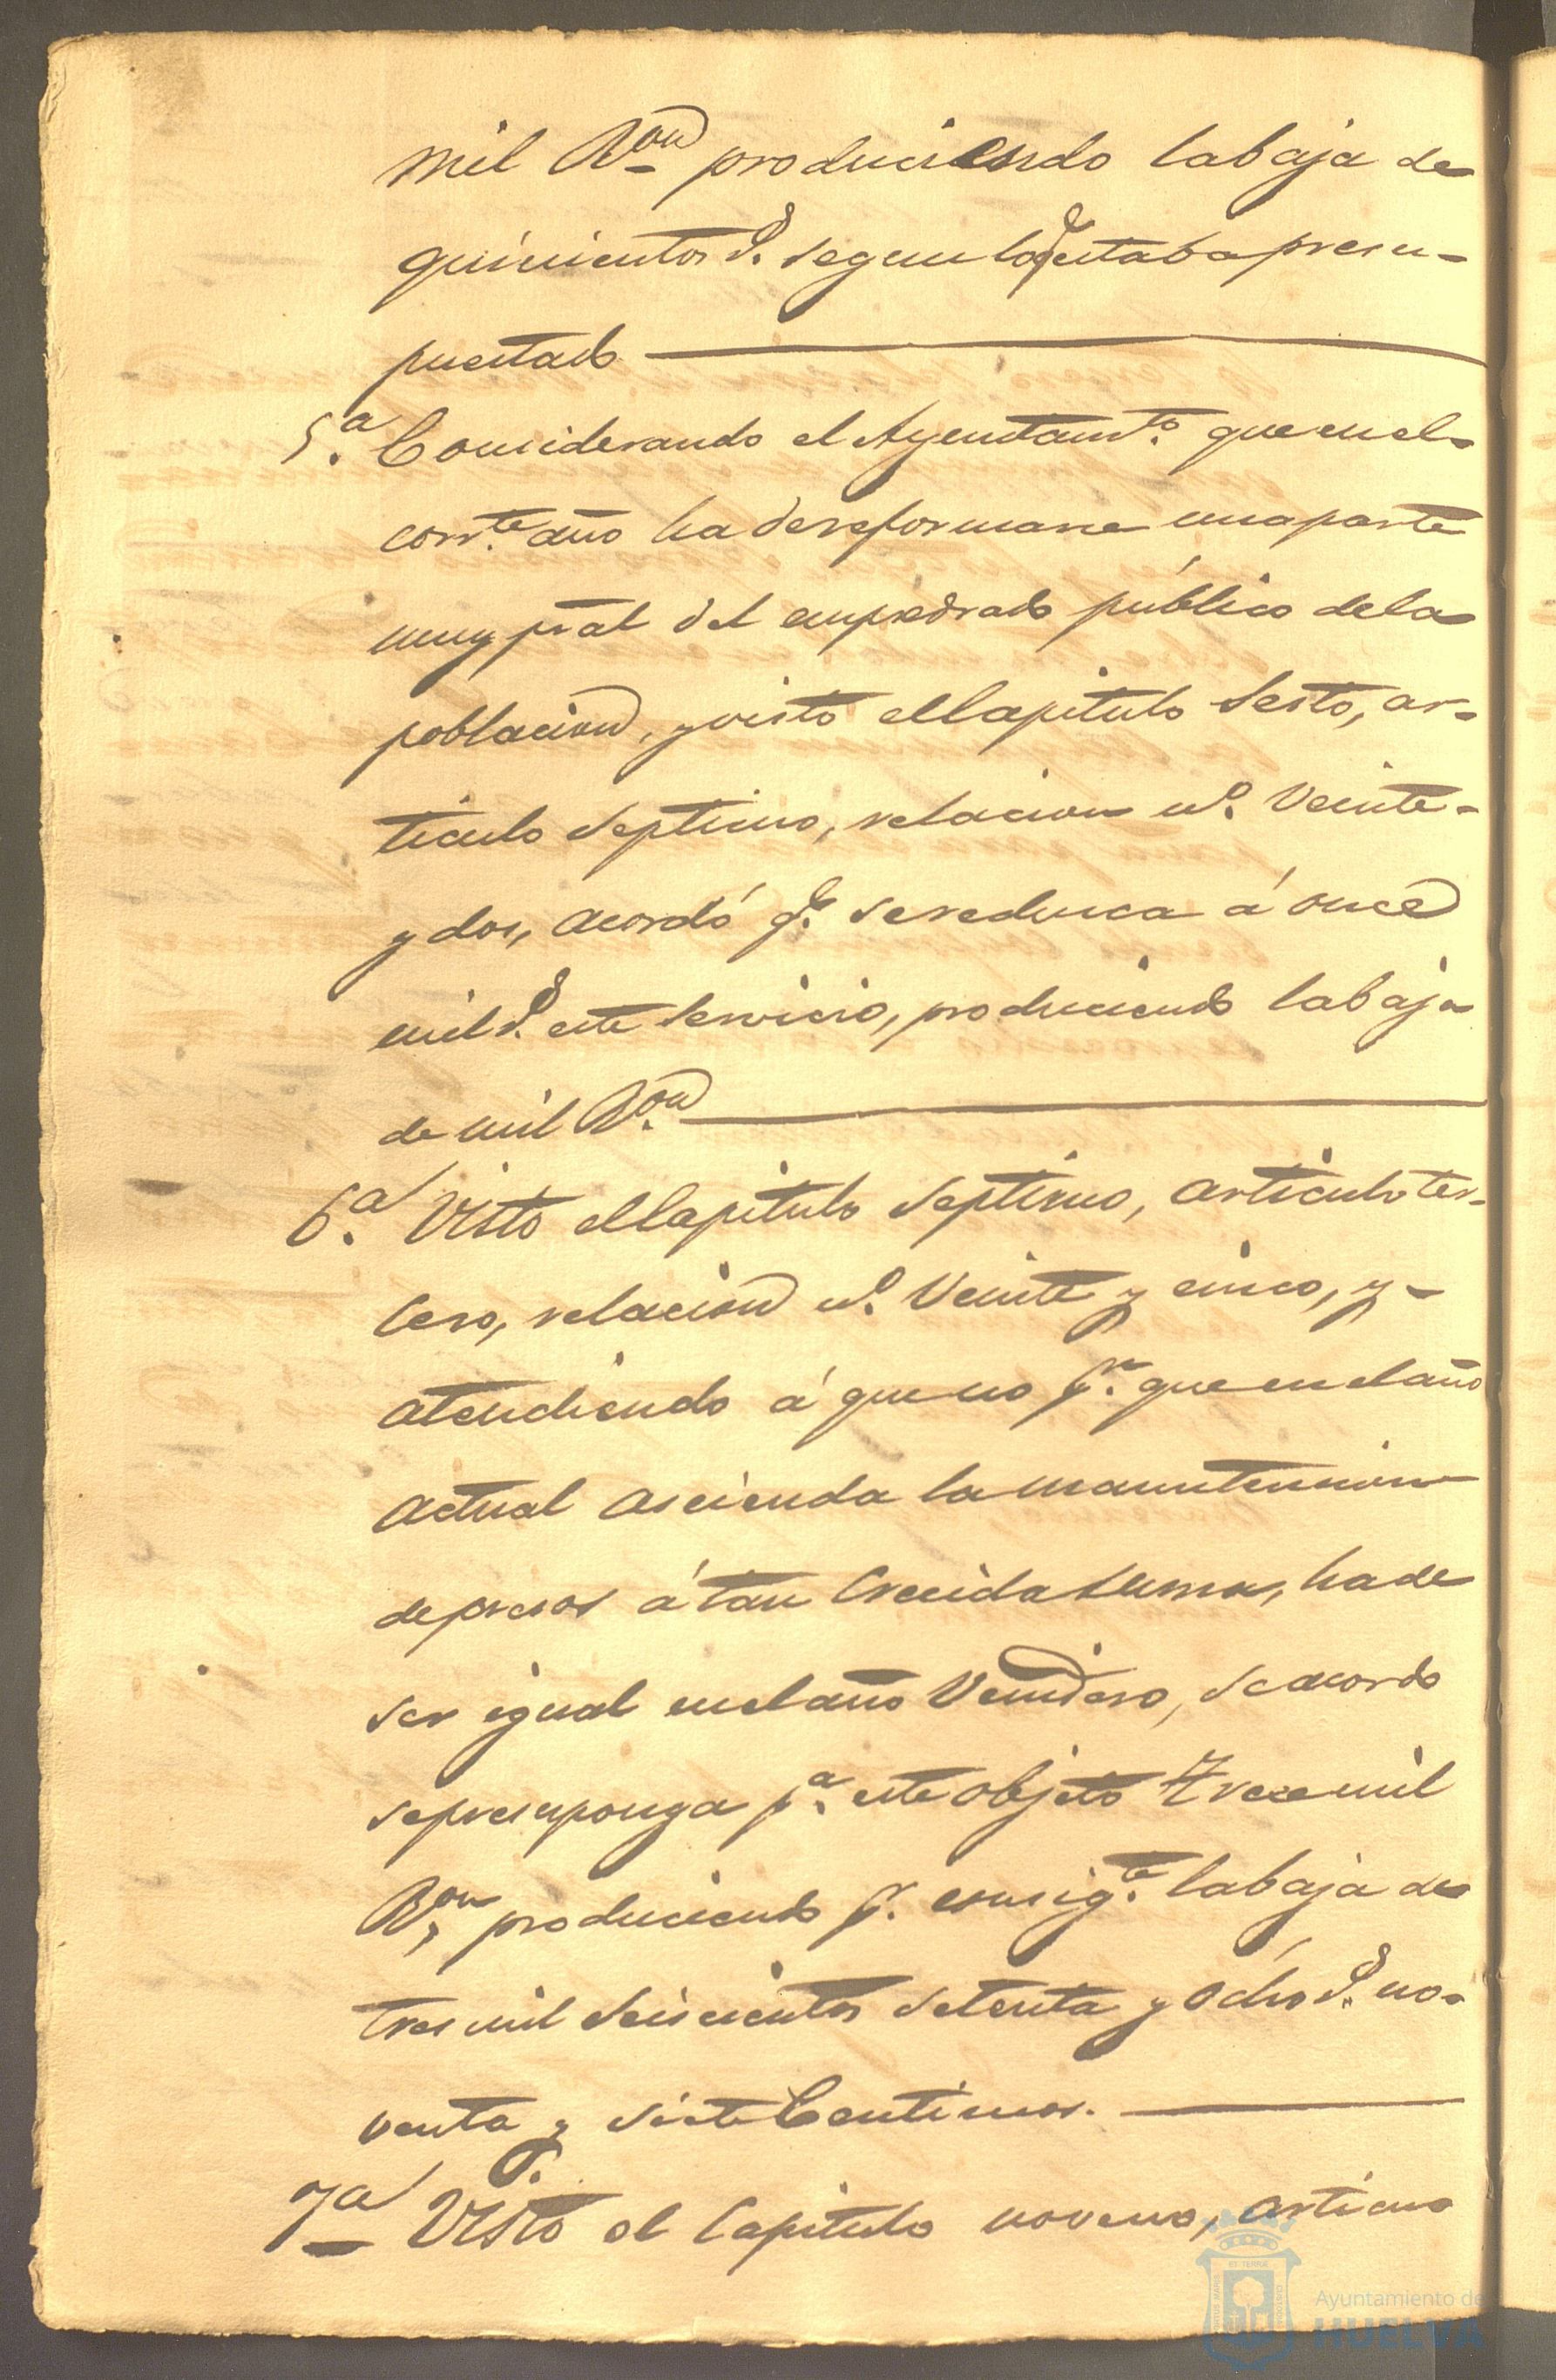 mil Ron produciendo la baja de
quinientos r.s segun lo q.e estaba presu-
puestado
5.a Considerando el Ayuntamto. que en el
corr.te año ha de reformarse una parte
muy pral del empedrado público de la
poblacion, y visto el Capitulo Sesto, ar-
ticulo Septimo, relacion n.o Veinte
y dos, acordó q.e se reduzca á once
mil r.s este Servicio, produciendo la baja
de mil R.on
6.a Visto el Capitulo Septimo, articulo ter-
cero, relacion n.o Veinte y cinco, y
atendiendo á que no p.r que en el año
actual ascienda la manutencion
de presos á tan crecida suma, ha de
ser igual en el año Venidero, se acordo
se presuponga p.a este objeto Trece mil
R.on produciendo p.r consig.te la baja de
tres mil Seiscientos setenta y ocho r.s no-
venta y siete Centimos.
7a Visto el Capitulo noveno, articuo
Ayuntamiento de
HUELVA